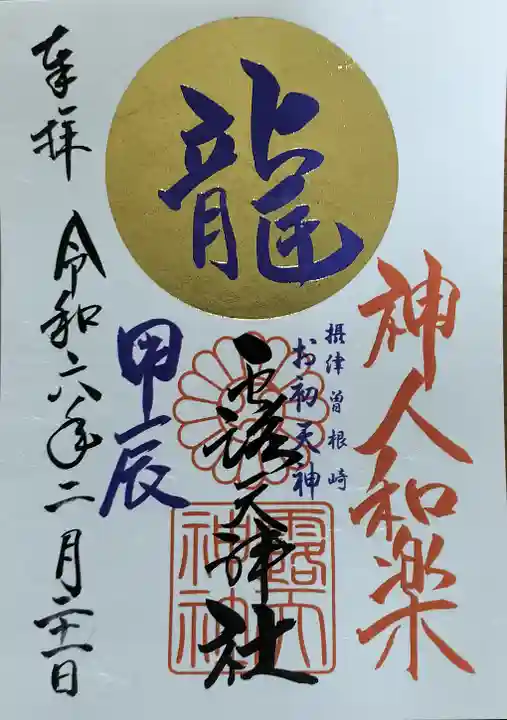 龍
神人和楽
摂津曽根崎
お初天神
露天神社
甲辰
奉拝
令和六年二月二十一日